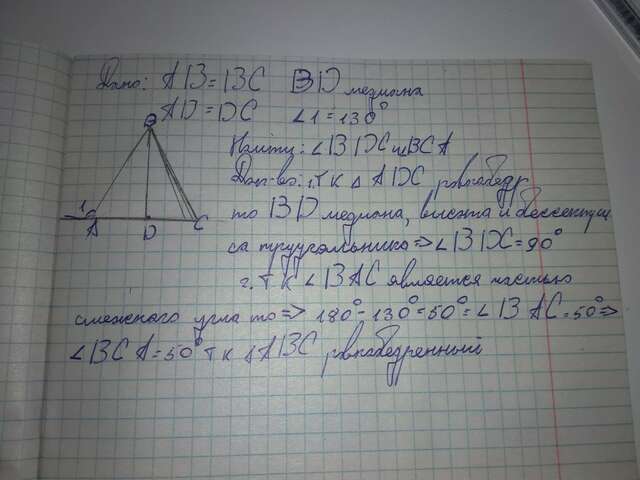 Дано: AB=BC BD медиана
AD=DC ∠1=130°
Найти: ∠BDC и ∠BCA
Док-во: 1. Т К △ADC равнобедр
то BD медиана, высота и бессектри
са труугольника ⇒ ∠BDC=90°
2. Т К ∠BAC является частью
смежного угла то ⇒ 180°-130°=50°=∠BAC=50° ⇒
∠BCA=50° т к △ABC равнобедренный
B
1
A
D
C